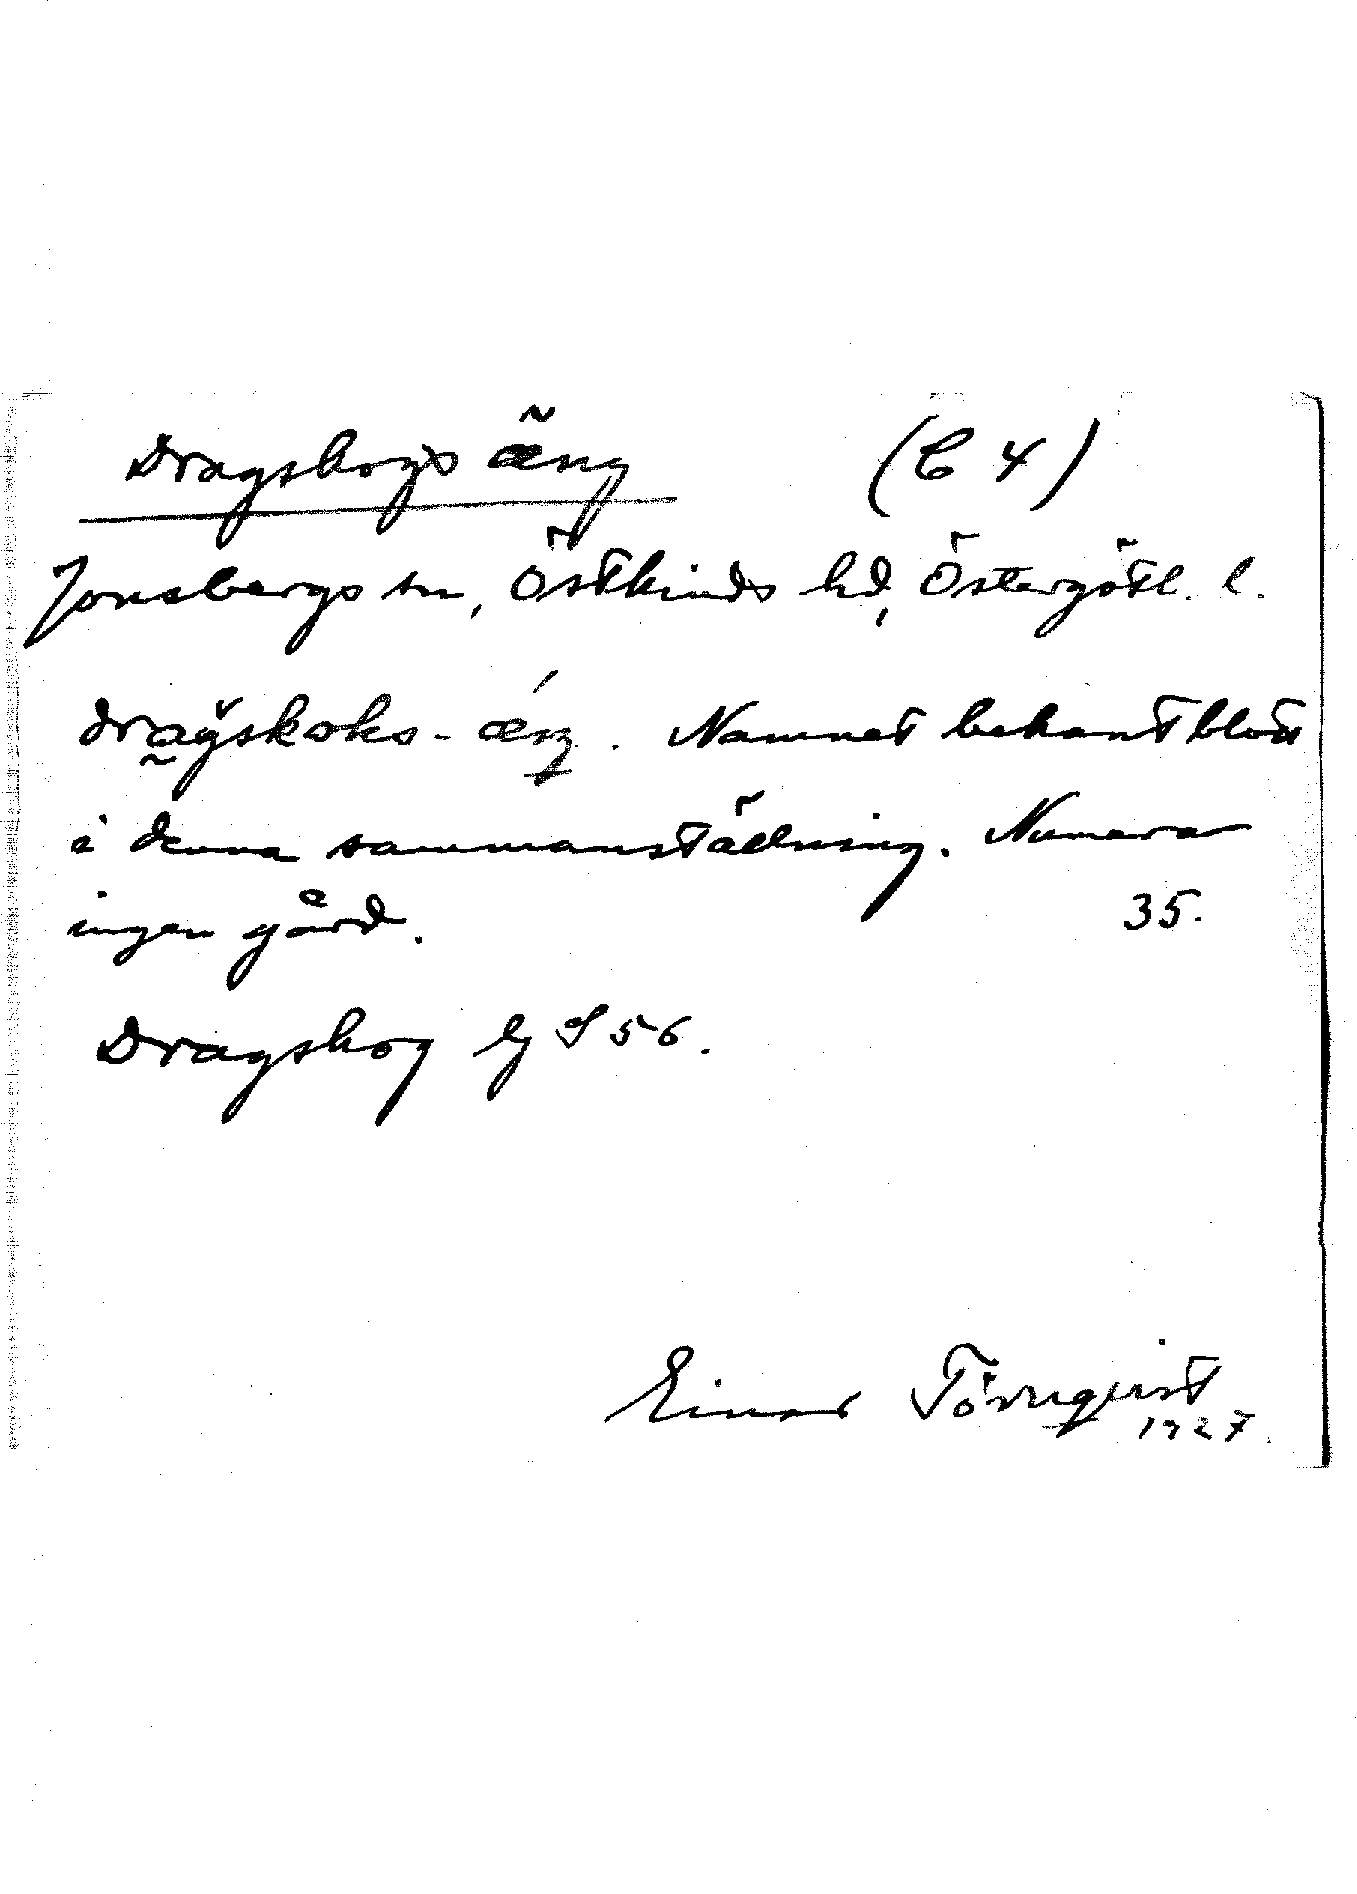 Dragskogs äng (C 4)
Jonsbergs sn, Östkinds hd, Östergötl. l.
dragskoks-äŋ. Namnet bekant blott
i denna sammanställning. Numera
ingen gård. 35.
Dragskog lj S 56.
Einar Törnqvist
1927.